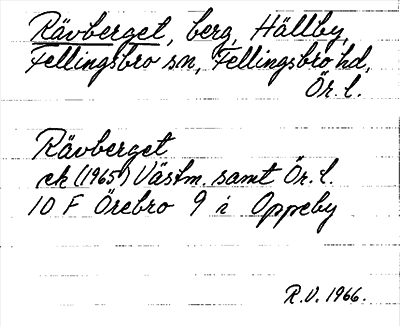 Rävberget, berg, Hällby,
Fellingsbro sn, Fellingsbro hd,
Ör. l.
Rävberget
ek (1965) Västm. samt Ör. l.
10 F Örebro 9 i Oppeby
R.V. 1966.